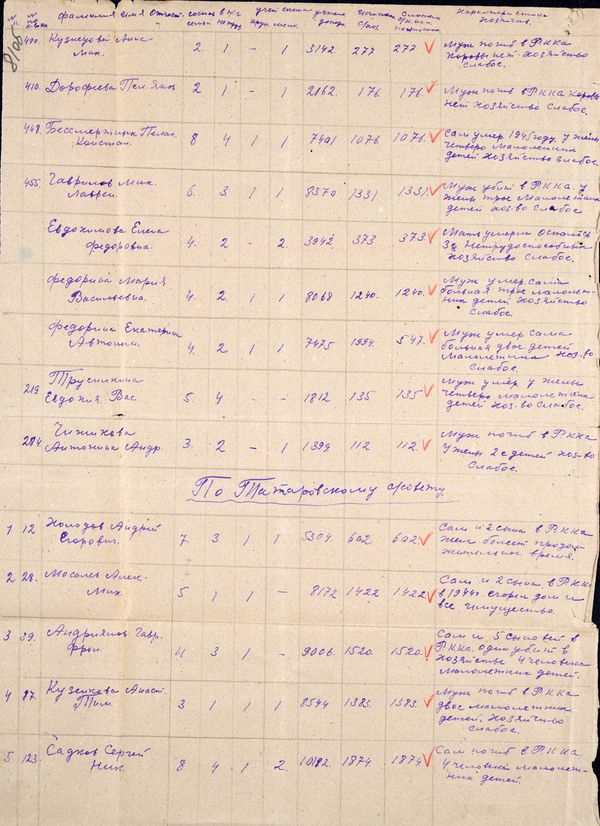 8/об
№ № фамилия имя Отчест. состав семьи в т.ч. нетруд.
490. Кузнецова Анна 2 1 - 1 3142 277 277 Муж погиб в РККА
Мих. Коровы нет. Хозяйство
Слабое.
410. Дорофеева Пел. Яков 2 1 - 1 2162. 176 176. Муж погиб в РККА Коровы
нет Хозяйство Слабое.
448. Бессмертных Пелаг. 8 4 1 1 7491 1076 1076. Сам умер 1945 году. у жены
Констан. Четверо малолетних
детей Хозяйство слабое.
455. Гаврилов Мих. 6. 3 1 1 8370 1331 1331. Муж убит в РККА. у
Лаврен. жены трое Малолетних
детей хоз-во Слабое
Евдокимова Елена 4. 2 - 2. 3942 373 373 Мать умерла Остались
Федоровна. 3х Нетрудоспособных
Хозяйство Слабое.
Федорина Мария 4. 2. 1 1 8068 1240. 1240. Муж умер. сама
Васильевна. больная трое малолет-
них детей Хозяйство
Слабое.
Федорина Екатерина 4. 2 1 1 7475 1994. 547. Муж умер Сама
Автоном. больная двое детей
Малолетних хоз-во
Слабое.
219 Трусихина 5 4 - - 1812 135 135 Муж умер у жены
Евдокия. Вас. четверо малолетних
детей хоз-во Слабое.
284. Чижикова 3. 2 - 1 1399 112 112. Муж погиб в РККА
Антонина Андр. у жены 2е детей хоз-во
Слабое.
По Татаровскому совету
1 12 Холодов Андрей 7. 3 1 1 5304. 602 602. Сам и 2 сына в РККА
Егорович. Жена болеет продол-
жительное время.
2 28. Мосалев Алек. 5 1 1 - 8172 1422 1422 Сам и 2 сына в РККА
Мих. в 1944г сгорел дом и
все имущество.
3 39. Андриянов Гавр. 4 3 1 - 9006. 1520. 1520. Сам и 5 сыновей в
Фрол. РККА. Один убит в
Хозяйстве 4 человека
Малолетних детей.
4 87. Кузенкова Анаст. 3 1 1 1 8544 1383. 1383. Муж погиб в РККА
Тим. двое малолетних
детей. Хозяйство
Слабое.
5 123. Садков Сергей 8 4 1 2. 10182. 1874. 1874 Сам погиб в РККА.
Ник. 4 человека малолет-
них детей.